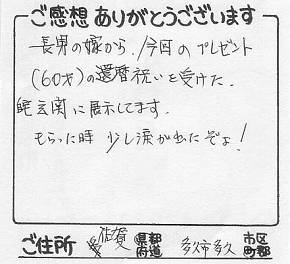 ご感想 ありがとうございます
長男の嫁から、今回のプレゼント
(60才)の還暦祝いを受けた.
玄関に展示してます.
もらった時 少し涙が出たぞょ!
ご住所 佐賀 都道府県 多久市多久 市区町郡